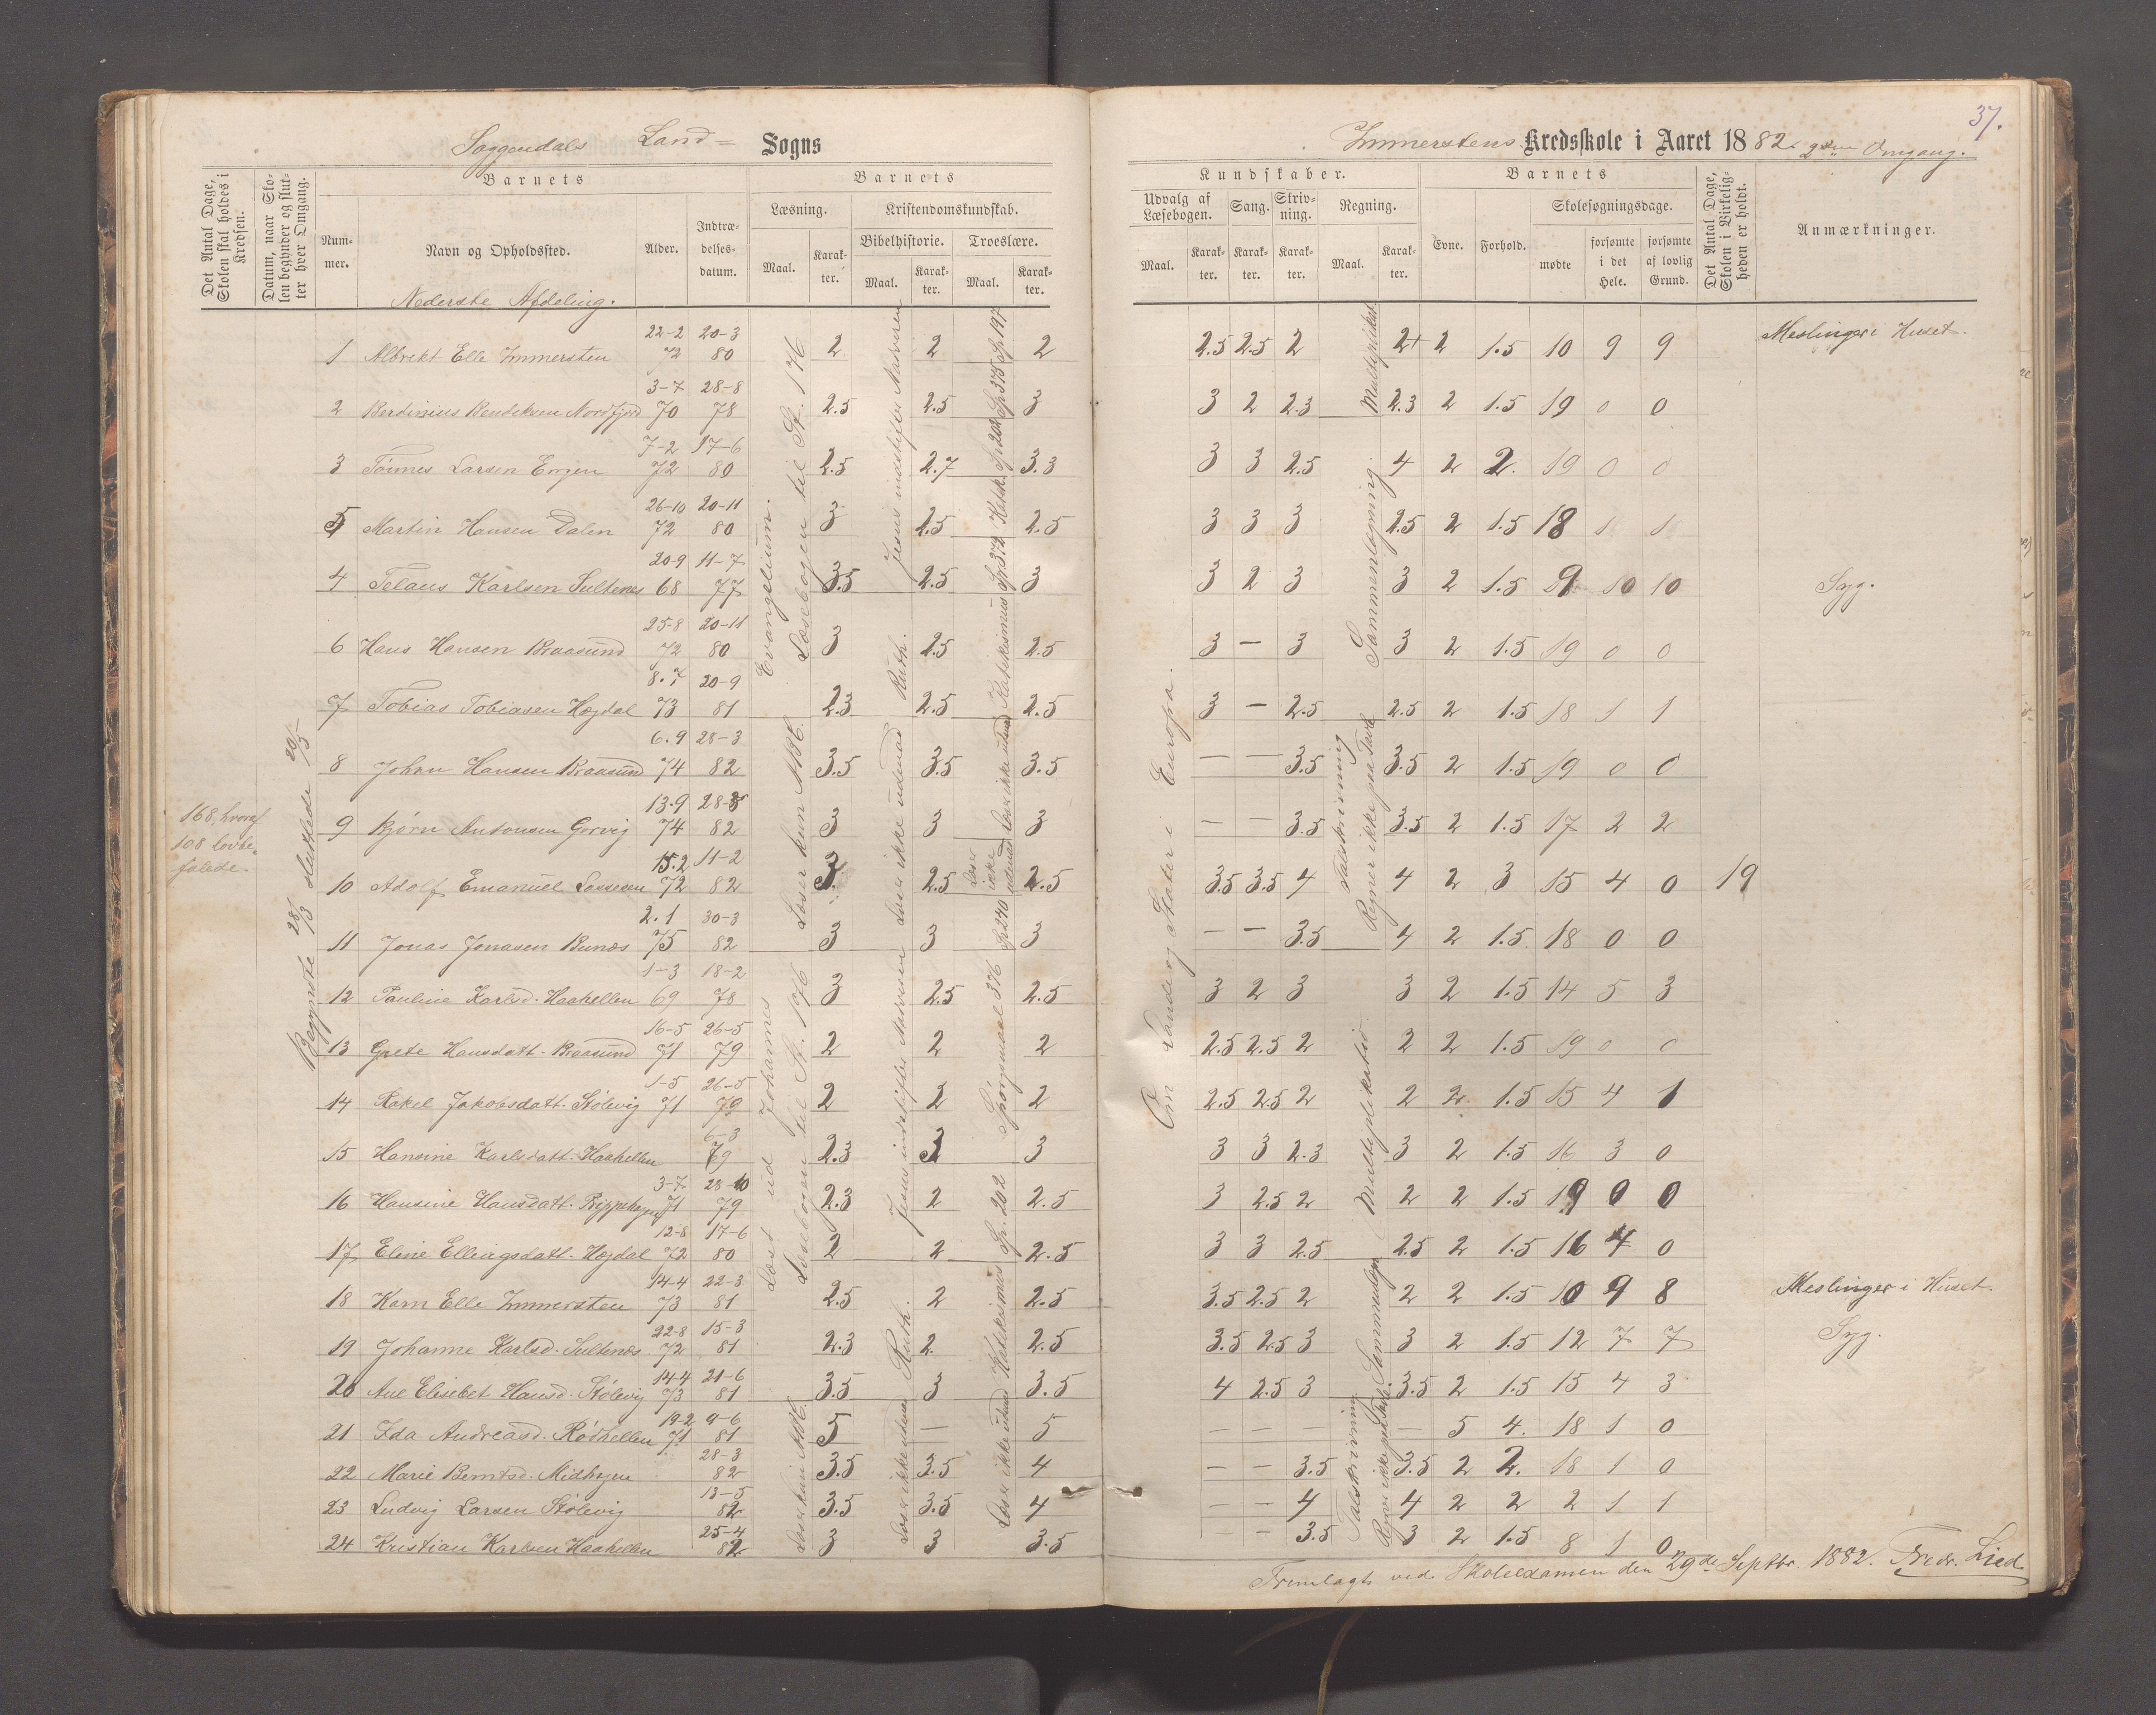 37.
Soggendals Land- Sogns
Immerstens Kredsskole i Aaret 1882. 2den Omgang.
Det Antal Dage, Skolen skal holdes i Kredsen.
Datum, naar Skolen begynder og slutter hver Omgang.
Barnets
Nummer.
Navn og Opholdssted.
Alder.
Indtrædelsesdatum.
Barnets
Læsning.
Maal.
Karakter.
Kristendomskundskab.
Bibelhistorie.
Maal.
Karakter.
Troeslære.
Maal.
Karakter.
Kundskaber.
Udvalg af Læsebogen.
Maal.
Karakter.
Sang.
Karakter.
Skrivning.
Karakter.
Regning.
Maal.
Karakter.
Barnets
Evne.
Forhold.
Skolesøgningsdage.
mødte
forsømte i det Hele.
forsømte af lovlig Grund.
Det Antal Dage, Skolen i Virkeligheden er holdt.
Anmærkninger.
Nederste Afdeling.
168, hvoraf
108 lovbefalede.
Begyndte 28/3 sluttede 20/5
1 Albrekt Elle Immersten 22-2 72 20-3 80 2 2 2 2.5 2.5 2 2+ 2 1.5 10 9 9 Meslinger i Huset.
2 Berdinius Bendiksen Nordfjord 3-7 70 28-8 78 2.5 2.5 3 3 2 2.3 2.3 2 1.5 19 0 0
3 Tönnes Larsen Eregen 7-2 72 17-6 80 2.5 2.7 3.3 3 3 2.5 4 2 2. 19 0 0
5 Martin Hansen Dalen 26-10 72 20-11 80 3 2.5 2.5 3 3 3 2.5 2 1.5 18 1 1
4 Telaus Karlsen Sultenes 20-9 68 11-7 77 3.5 2.5 3 3 2 3 3 2 1.5 9 10 10 Syg.
6 Hans Hansen Braasund 25-8 72 20-11 80 3 2.5 2.5 3 — 3 3 2 1.5 19 0 0
7 Tobias Tobiasen Hægdal 8.7 73 20-9 81 2.3 2.5 2.5 3 — 2.5 2.5 2 1.5 18 1 1
8 Johan Hansen Braasund 6.9 74 28-3 82 3.5 3.5 3.5 — — 3.5 3.5 2 1.5 19 0 0
9 Bjørn Antonsen Gorvig 13.9 74 28-3 82 3 3 3 — — 3.5 3.5 2 1.5 17 2 2
10 Adolf Emanuel Lassesen 15.2 72 11-2 82 3. 2.5 2.5 3.5 3.5 4 4 2 3 15 4 0 19
11 Jonas Jonasen Bunæs 2.1 75 30-3 82 3 3 3 — — 3.5 4 2 1.5 18 0 0
12 Pauline Karlsd. Haahellen 1-3 69 18-2 78 3 2.5 2.5 3 2 3 3 2 1.5 14 5 3
13 Grete Hansdatt. Braasund 16-5 71 26-5 79 2 2 2 2.5 2.5 2 2 2 1.5 19 0 0
14 Rakel Jakobsdatt. Stölevig 1-5 71 26-5 79 2 2 2 2.5 2.5 2 2 2 1.5 15 4 1
15 Hansine Karlsdatt. Haahellen 6-3 79 2.3 3 3 3 3 2.3 3 2 1.5 16 3 0
16 Hansine Hansdatt. 3-7 71 28-10 79 2.3 2 2.5 3 2.5 2 2 2 1.5 19 0 0
17 Eline Ellingsdatt. Hægdal 12-8 72 17-6 80 2 2 2.5 3 3 2.5 2.5 2 1.5 16 4 0
18 Karn Elle Immersten 14-4 73 22-3 81 2.5 2 2.5 3.5 2.5 2 2 2 1.5 10 9 8 Meslinger i Huset.
19 Johanne Karlsd. Sultenæs 22-8 72 15-3 81 2.3 2. 2.5 3.5 2.5 3 3 2 1.5 12 7 7 Syg.
20 Ane Elisebet Hansd. Stölevig 14-4 73 21-6 81 3.5 3 3.5 4 2.5 3 3.5 2 1.5 15 4 3
21 Ida Andreasd. Rödhellen 19-2 71 9-6 81 5 — 5 — — — — 5 4. 18 1 0
22 Marie Berntsd. Midhegen 28-3 82 3.5 3.5 4 — — 3.5 3.5 2 2. 18 1 0
23 Ludvig Larsen Stölevig 13-5 82 3.5 3.5 4 — — 4 4 2 2 2 1 1
24 Kristian Karlsen Haahellen 25-4 82 3 3 3.5 — — 3.5 3 2 1.5 8 1 0
Evangelium.
Læsebogen til St. 176
Læser kun ABC.
Læst ud Johannes
Læsebogen til St. 176
Læser kun ABC.
Jesus indstifter Nadveren
Ruth.
Læser ikke udenad
Jesus indstifter Nadveren
Ruth.
Læser ikke udenad
Sp. 197
Sp. 375
Sp. 202
Katekismus Sp. 372
Læser ikke udenad
Læser ikke udenad
Sp. 240
Spörgsmaal 376
Sp. 202
Katekismus
Læser ikke udenad
Om Lande og Stater i Europa.
Multiplikat.
Sammenlægning.
Talskrivning
Regner ikke paa Tavle
Multiplikation
Sammenlægn.
Talskrivning
Regner ikke paa Tavle.
Fremlagt ved Skoleexamen den 29de Septbr 1882. Fredr. Lied